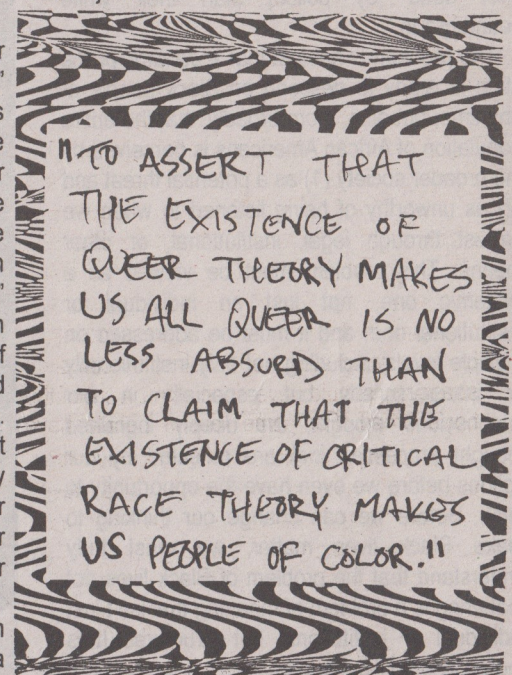 "TO ASSERT THAT
THE EXISTENCE OF
QUEER THEORY MAKES
US ALL QUEER IS NO
LESS ABSURD THAN
TO CLAIM THAT THE
EXISTENCE OF CRITICAL
RACE THEORY MAKES
US PEOPLE OF COLOR."